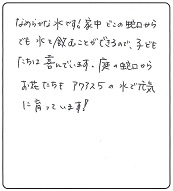 なめらかな水です!家中どこの蛇口から
でも水を飲むことができるので、子ども
たちは喜んでいます。庭の蛇口から
お花たちも アクアス5の水で元気
に育っています!